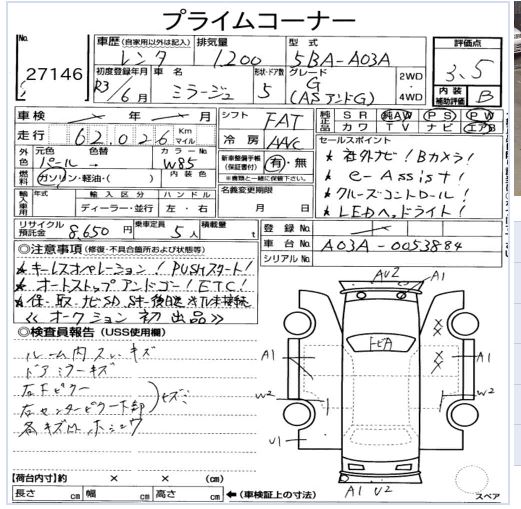 プライムコーナー
No.
27146
車歴 (自家用以外は記入)
レンタ
排気量
1,200
型式
5BA-A03A
評価点
3.5
内装補助評価
B
初度登録年月
R3/6月
車名
ミラージュ
形状・ドア数
5
グレード
G
(ASアンドG)
2WD
4WD
車検 年 月
走行
62,026
Km
マイル
シフト
FAT
冷房
AAC
純正品
SR 純AW PS PW
カワ TV ナビ エアB
セールスポイント
★ 社外ナビ!Bカメラ!
★ e-Assist!
★ クルーズコントロール!
★ LEDヘッドライト!
外色
元色
パール
色替
カラーNo.
W85
燃料
ガソリン・軽油・( )
内装色
新車整備手帳
(保証書付)
有・無
※書類と一緒に保管して下さい。
輸入車用
年式
輸入区分
ディーラー・並行
ハンドル
左・右
名義変更期限
月 日
リサイクル預託金
8,650円
乗車定員
5人
積載量
t
登録No.
車台No.
A03A-0053884
シリアルNo.
◎注意事項 (修復・不具合箇所および状態等)
★ キーレスオペレーション!PUSHスタート!
★ オートストップアンドゴー!ETC!
≪オークション初出品≫
◎検査員報告 (USS使用欄)
ルーム内スレキズ
ドアミラーキズ
左Fピラー
左センターピラー下部
キズミ
各キズ凹ホシュウ
AU2
A1
トビA
A1
A1
W2
W2
U1
A1 U2
スペア
【荷台内寸】約 × × (cm)
長さ cm 幅 cm 高さ cm ←(車検証上の寸法)